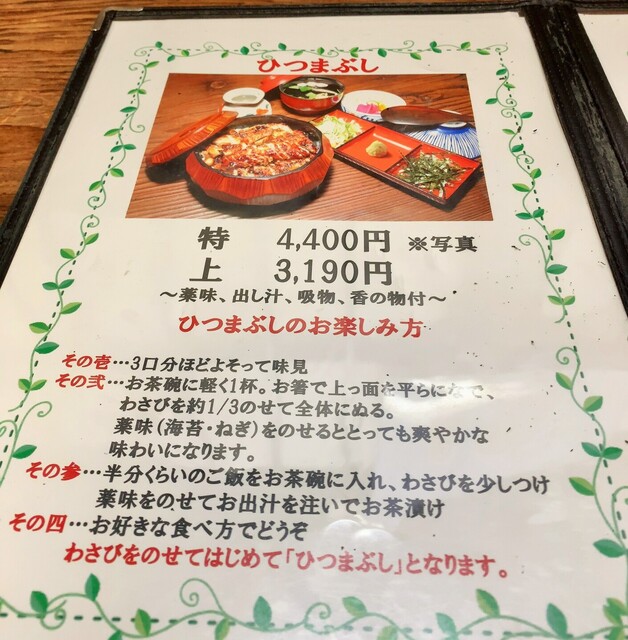 ひつまぶし
特 4,400円 ※写真
上 3,190円
～薬味、出し汁、吸物、香の物付～
ひつまぶしのお楽しみ方
その壱…3口分ほどよそって味見
その弐…お茶碗に軽く1杯。お箸で上っ面を平らになで、
わさびを約1/3のせて全体にぬる。
薬味(海苔・ねぎ)をのせるととっても爽やかな
味わいになります。
その参…半分くらいのご飯をお茶碗に入れ、わさびを少しつけ
薬味をのせてお出汁を注いでお茶漬け
その四…お好きな食べ方でどうぞ
わさびをのせてはじめて「ひつまぶし」となります。